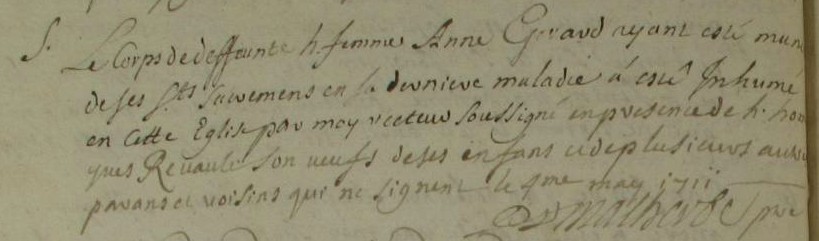 S. Le Corps de deffeunte h. femme Anne Giraud ayant esté muni
de ses Sts Sacremens en sa derniere maladie á esté Inhumé
en cette Eglise par moy recteur soussigné en presence de h. hom
yves Revault son veufs de ses enfans et de plusieurs autres
parans et voisins qui ne signent le 9me may 1711
Malherbe pre